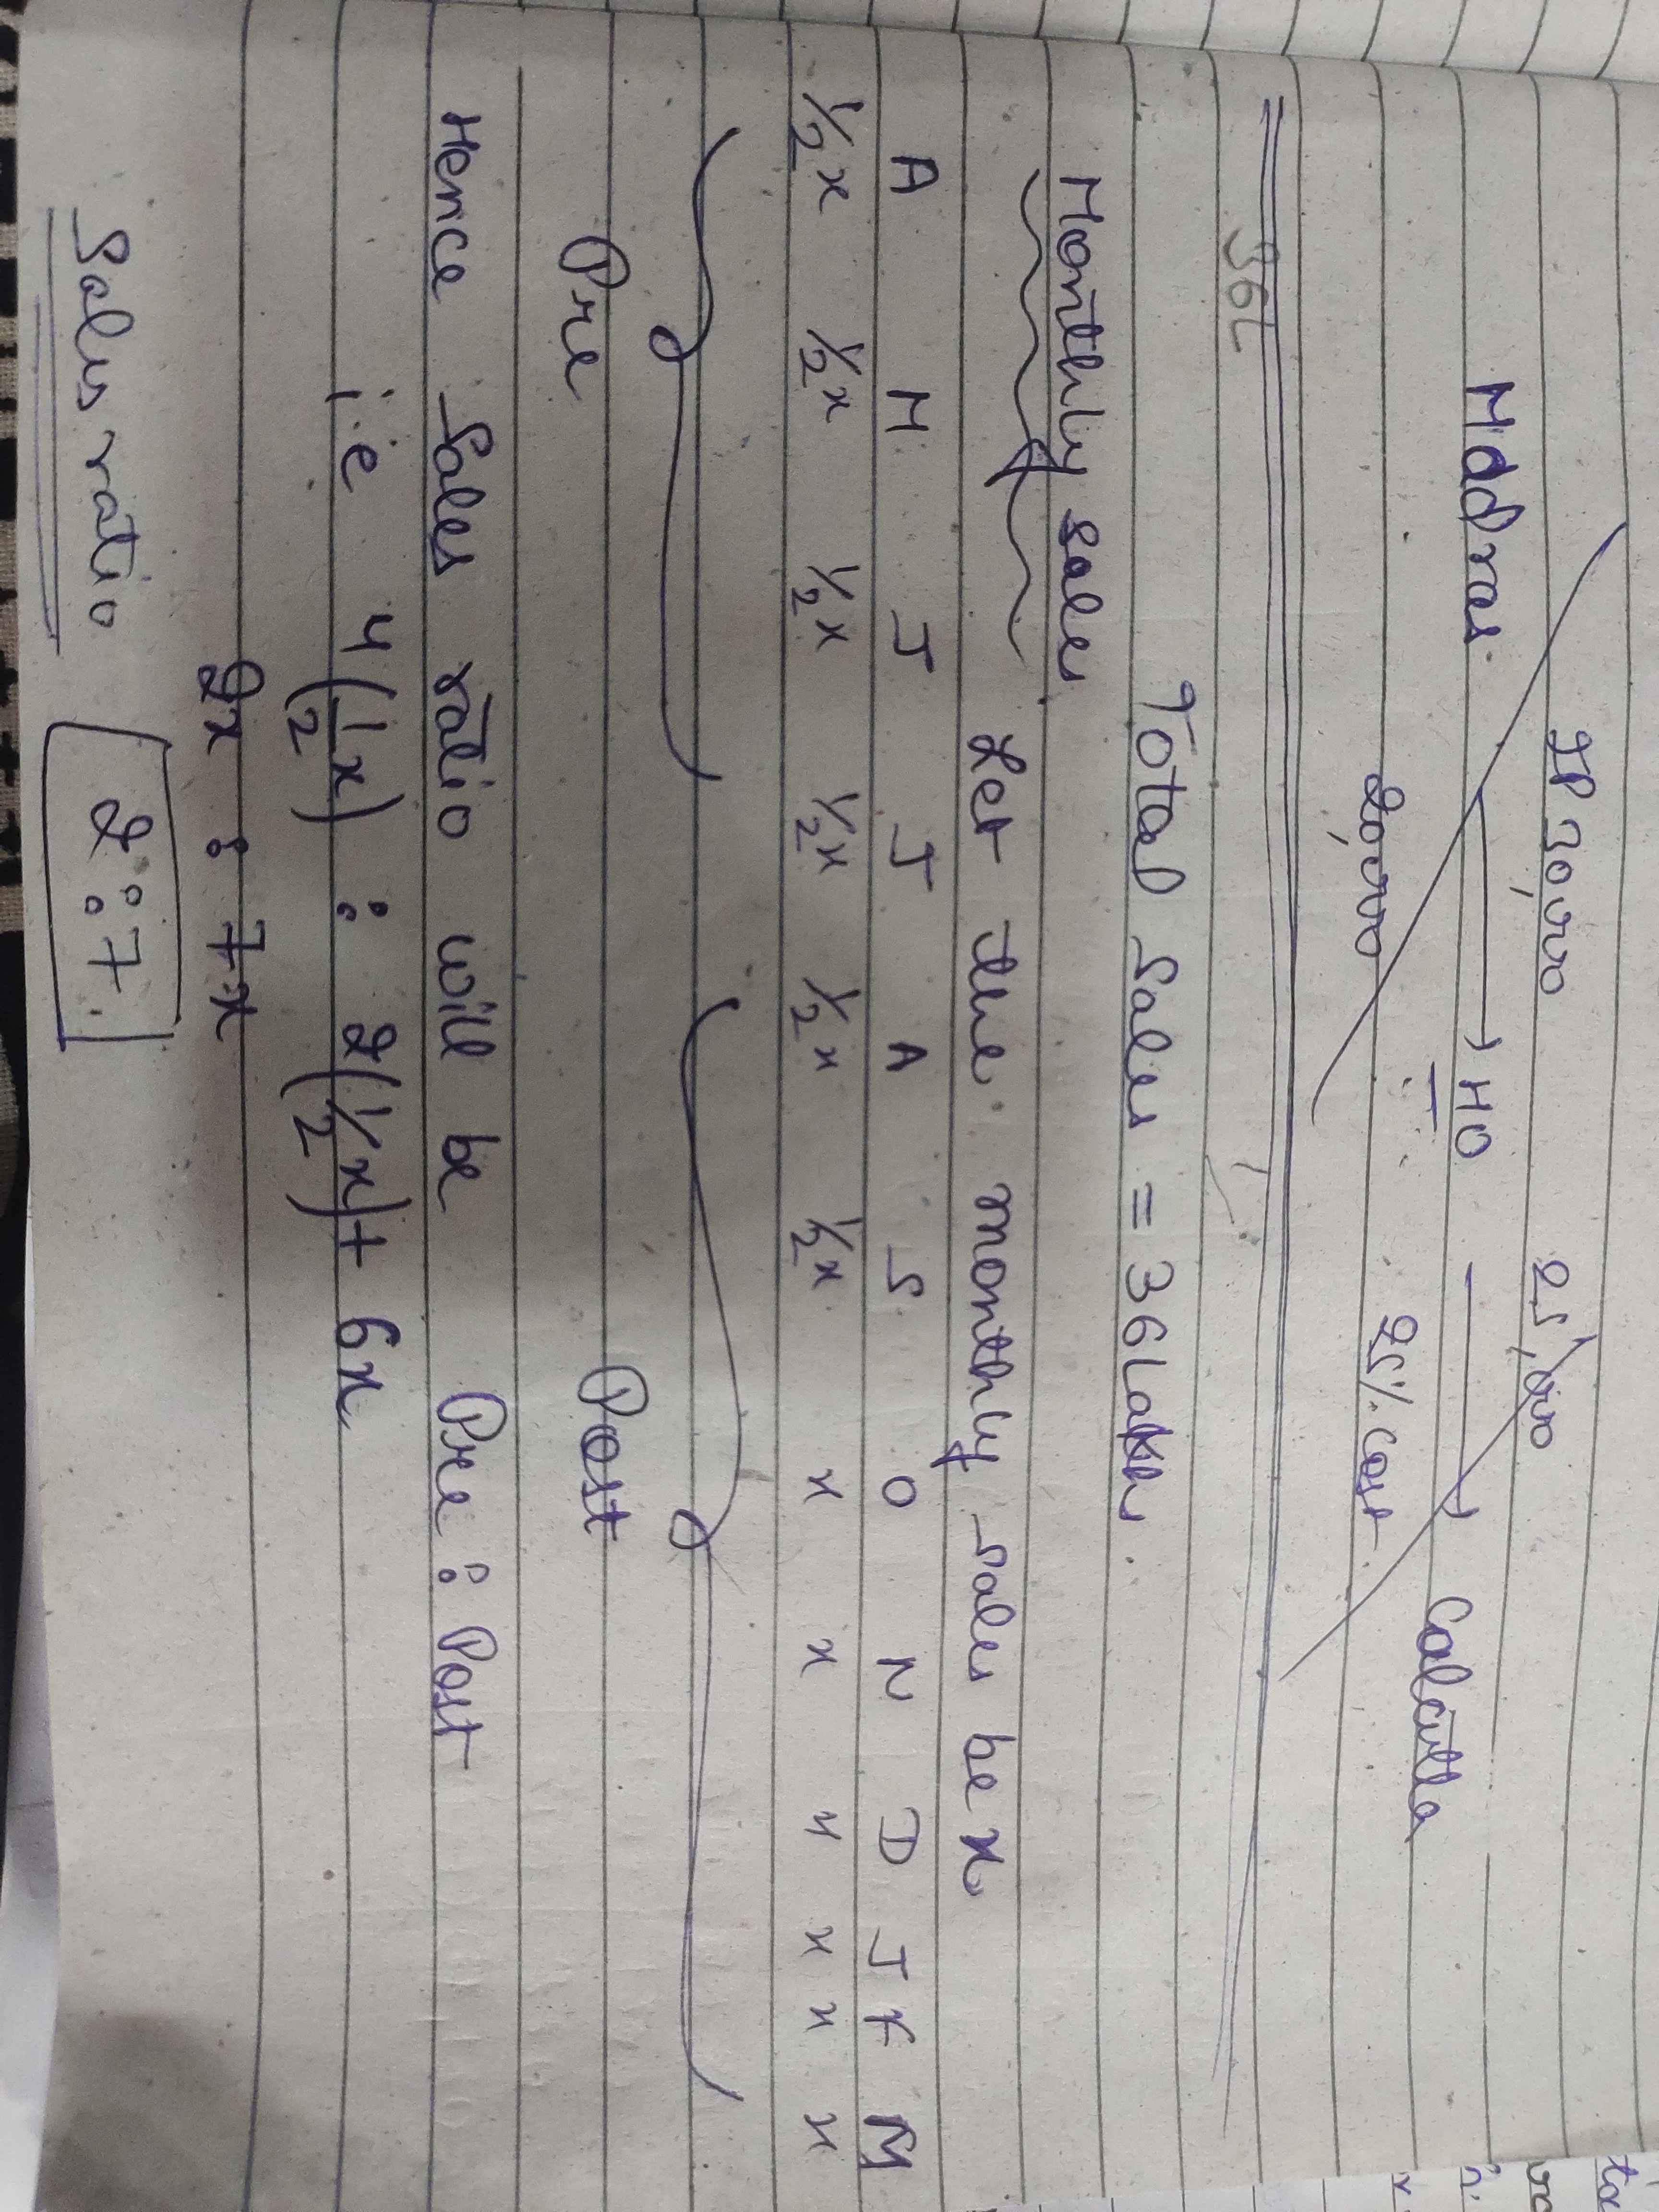 IP 30,000 25,000
Madras → HO → Calcutta
20,000 25% Cost.
36L
Total Sales = 36 Lakhs.
Monthly sales
Let the monthly sales be x
A M J J A S O N D J F M
1/2x 1/2x 1/2x 1/2x 1/2x 1/2x x x x x x x
Pre Post
Hence Sales ratio will be Pre : Post
i.e 4(1/2 x) : 2(1/2 x) + 6x
2x : 7x
Sales ratio 2:7